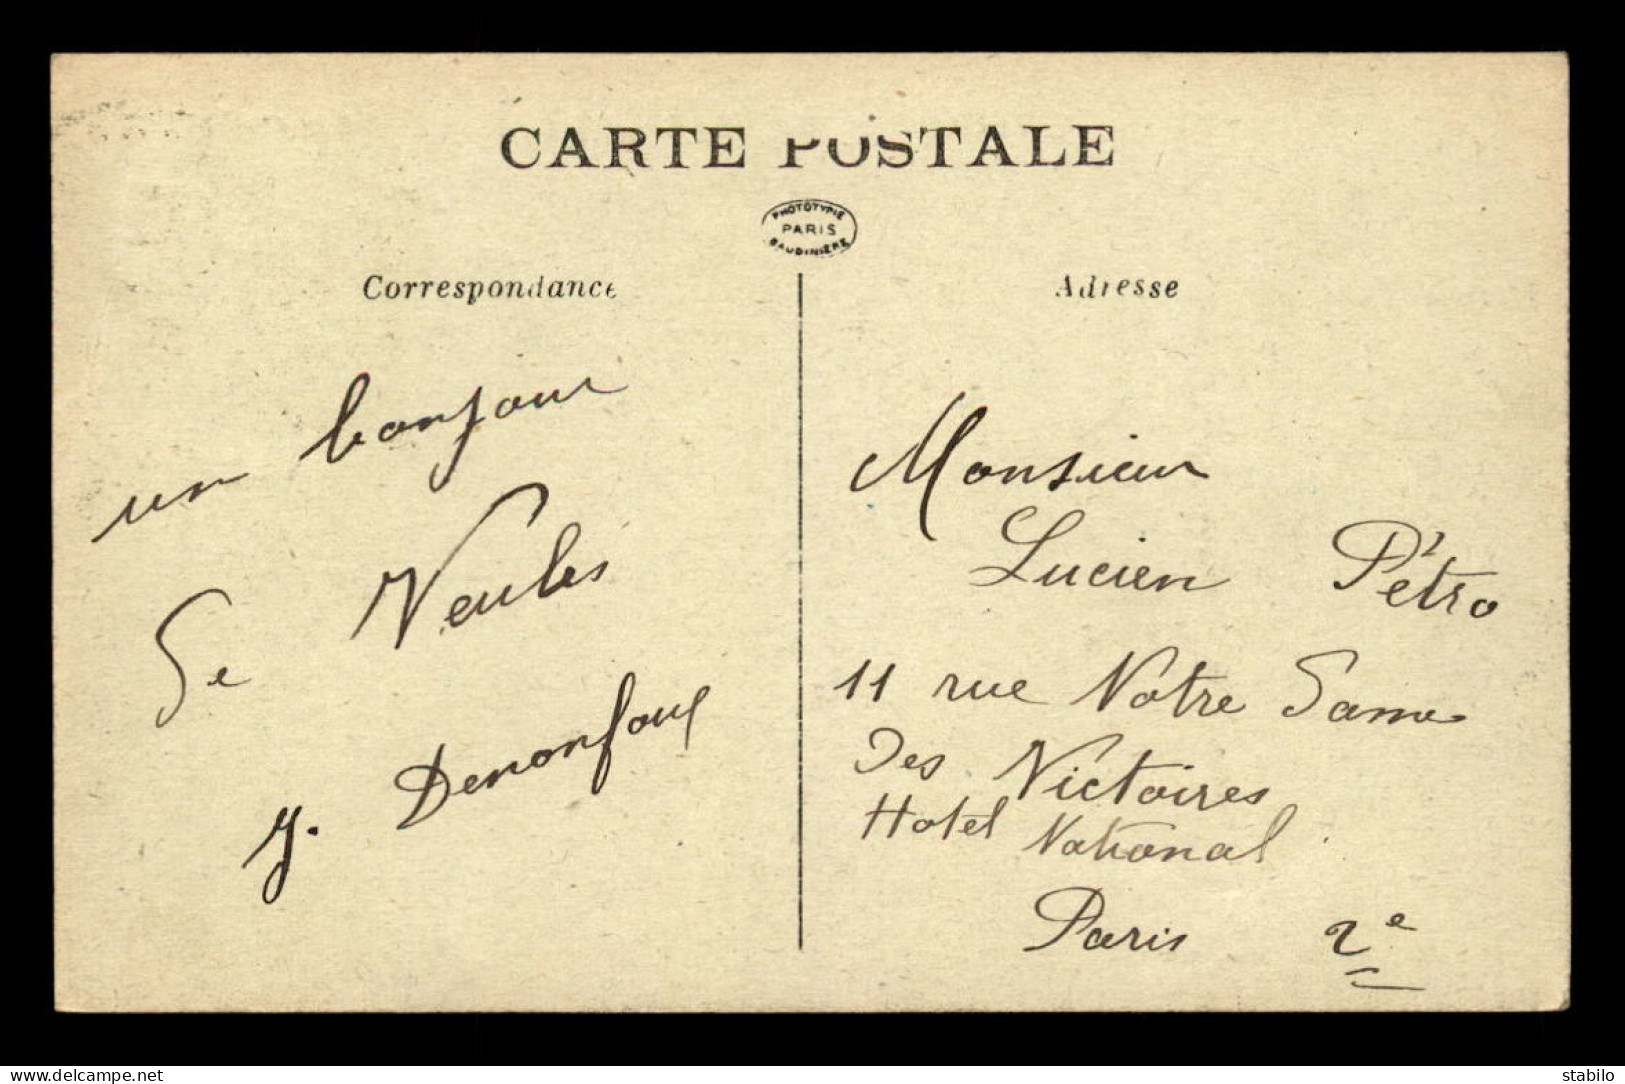 CARTE POSTALE
PHOTOTYPIE
PARIS
BAUDINIÈRE
Correspondance
un bonjour
De Veules
J. Denonfoux
Adresse
Monsieur
Lucien Pétro
11 rue Notre Dame
Des Victoires
Hotel National
Paris 2e
www.delcampe.net
stabilo